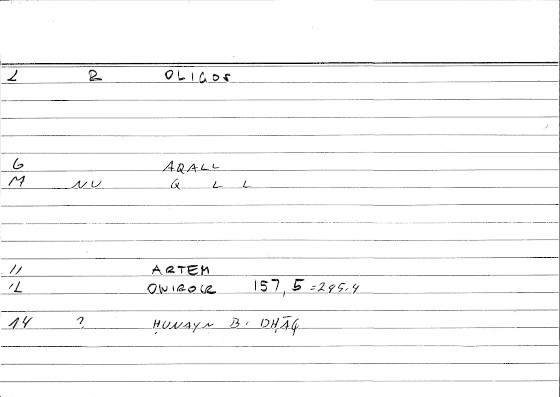 L R OLIGOS
6 AQALL
M NU Q L L
11 ARTEM
12 ONIROCR 157,5 =295.4
14 ? ḤUNAYN B. DHĀQ